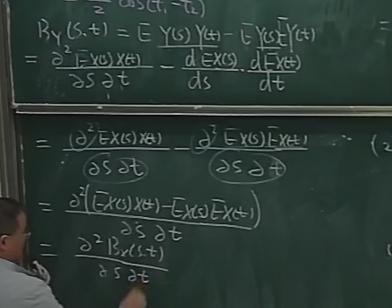 /2 cos(t₁-t₂)
B_Y(s.t) = E Y(s) Y(t) - E Y(s) E Y(t)
= ∂² E X(s) X(t) / ∂s ∂t - d E X(s) / ds · d E X(t) / dt
= ∂² E X(s) X(t) / ∂s ∂t - ∂² E X(s) E X(t) / ∂s ∂t
= ∂² (E X(s) X(t) - E X(s) E X(t)) / ∂s ∂t
= ∂² B_X(s.t) / ∂s ∂t